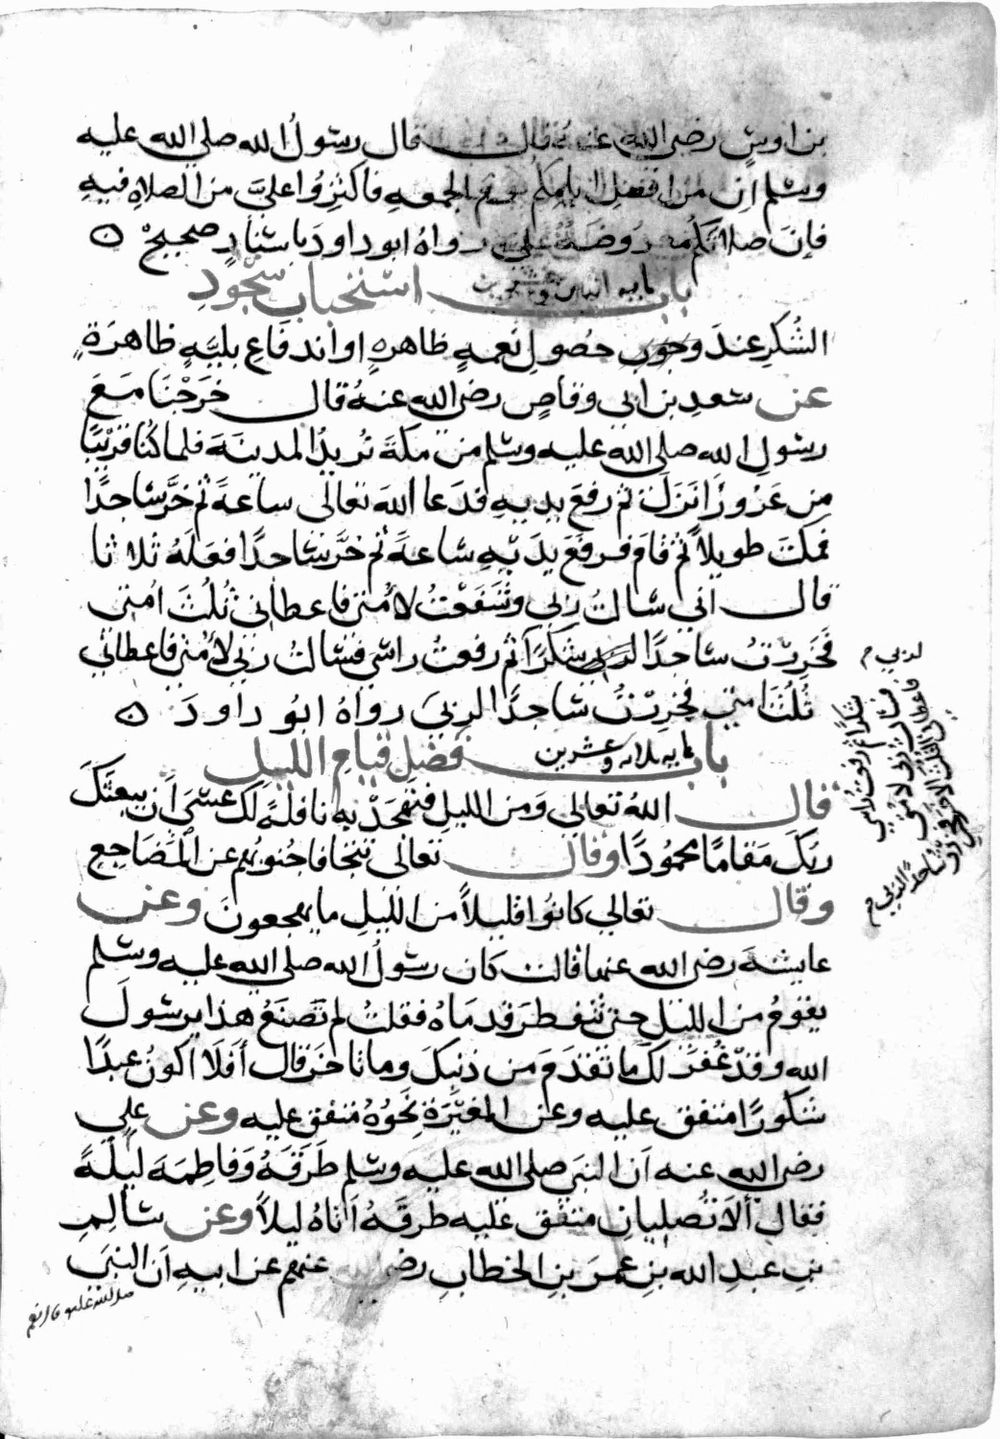 بن اوس رضي الله عنه قال قال رسول الله صلى الله عليه
وسلم ان من افضل ايامكم يوم الجمعه فاكثروا علي من الصلاة فيه
فان صلاتكم معروضة علي رواه ابو داود باسناد صحيح ه
باب مايه اثنان وعشرين استحباب سجود
الشكر عند وجوب حصول نعمة ظاهرة او اندفاع بلية ظاهرة
عن سعد بن ابي وقاص رضي الله عنه قال خرجنا مع
رسول الله صلى الله عليه وسلم من مكة نريد المدينة فلما كنا قريبا
من عزوزا نزل ثم رفع يديه فدعا الله تعالى ساعة ثم خر ساجدا
فمكث طويلا ثم قام فرفع يديه ساعة ثم خر ساجدا فعله ثلاثا
قال اني سالت ربي وشفعت لامتي فاعطاني ثلث امتي
فخررت ساجدا لربي شكرا ثم رفعت راسي فسالت ربي لامتي فاعطاني
ثلث امتي فخررت ساجدا لربي رواه ابو داود ه
باب مايه ثلاثه وعشرين فضل قيام الليل
قال الله تعالى ومن الليل فتهجد به نافلة لك عسى ان يبعثك
ربك مقاما محمودا وقال تعالى تتجافا جنوبهم عن المضاجع
وقال تعالى كانوا قليلا من الليل ما يهجعون وعن
عايشة رضي الله عنها قالت كان رسول الله صلى الله عليه وسلم
يقوم من الليل حتى تتفطر قدماه فقلت لم تصنع هذا يرسول
الله وقد غفر لك ما تقدم من ذنبك وما تاخر قال أفلا اكون عبدا
شكورا متفق عليه وعن المغيرة نحوه متفق عليه وعن علي
رضي الله عنه ان النبي صلى الله عليه وسلم طرقه وفاطمة ليلة
فقال ألا تصليان متفق عليه طرقه أتاه ليلا وعن سالم
بن عبد الله بن عمر بن الخطاب رضي الله عنهم عن ابيه ان النبي
صلى الله عليه
لربي م
شكرا ثم رفعت راسي
فسالت ربي لامتي
فاعطاني الثلث الاخر فخررت
ساجدا لربي م